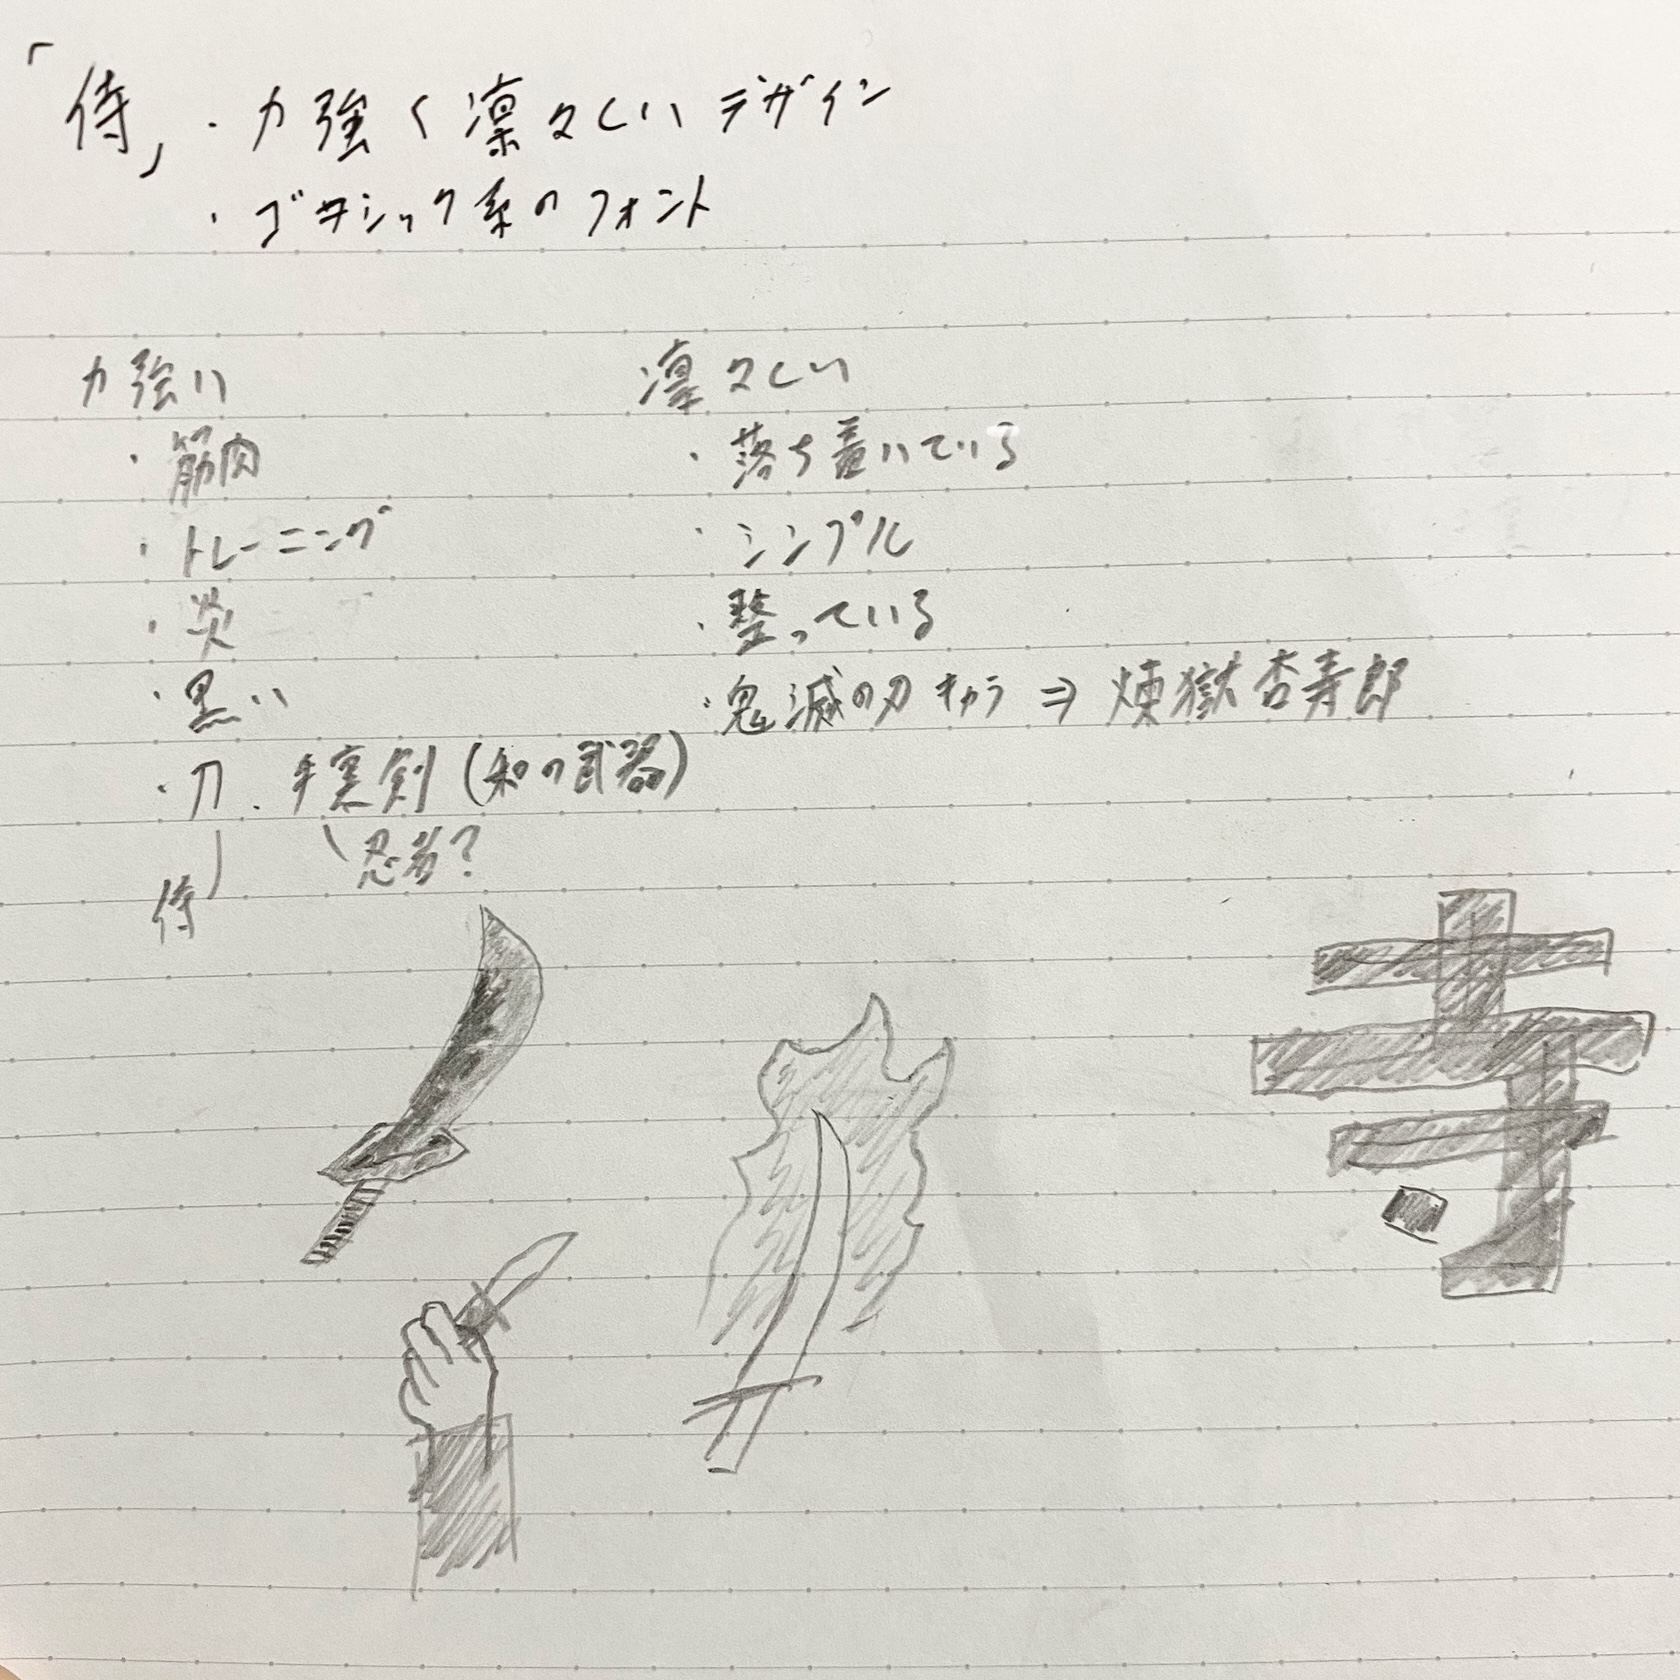 「侍」・力強く凛々しいデザイン
・ゴチシック系のフォント
力強い
・筋肉
・トレーニング
・炎
・黒い
・刀、手裏剣(和の武器)
侍 忍者?
凛々しい
・落ち着いている
・シンプル
・整っている
・鬼滅の刃キャラ⇒煉獄杏寿郎
寺